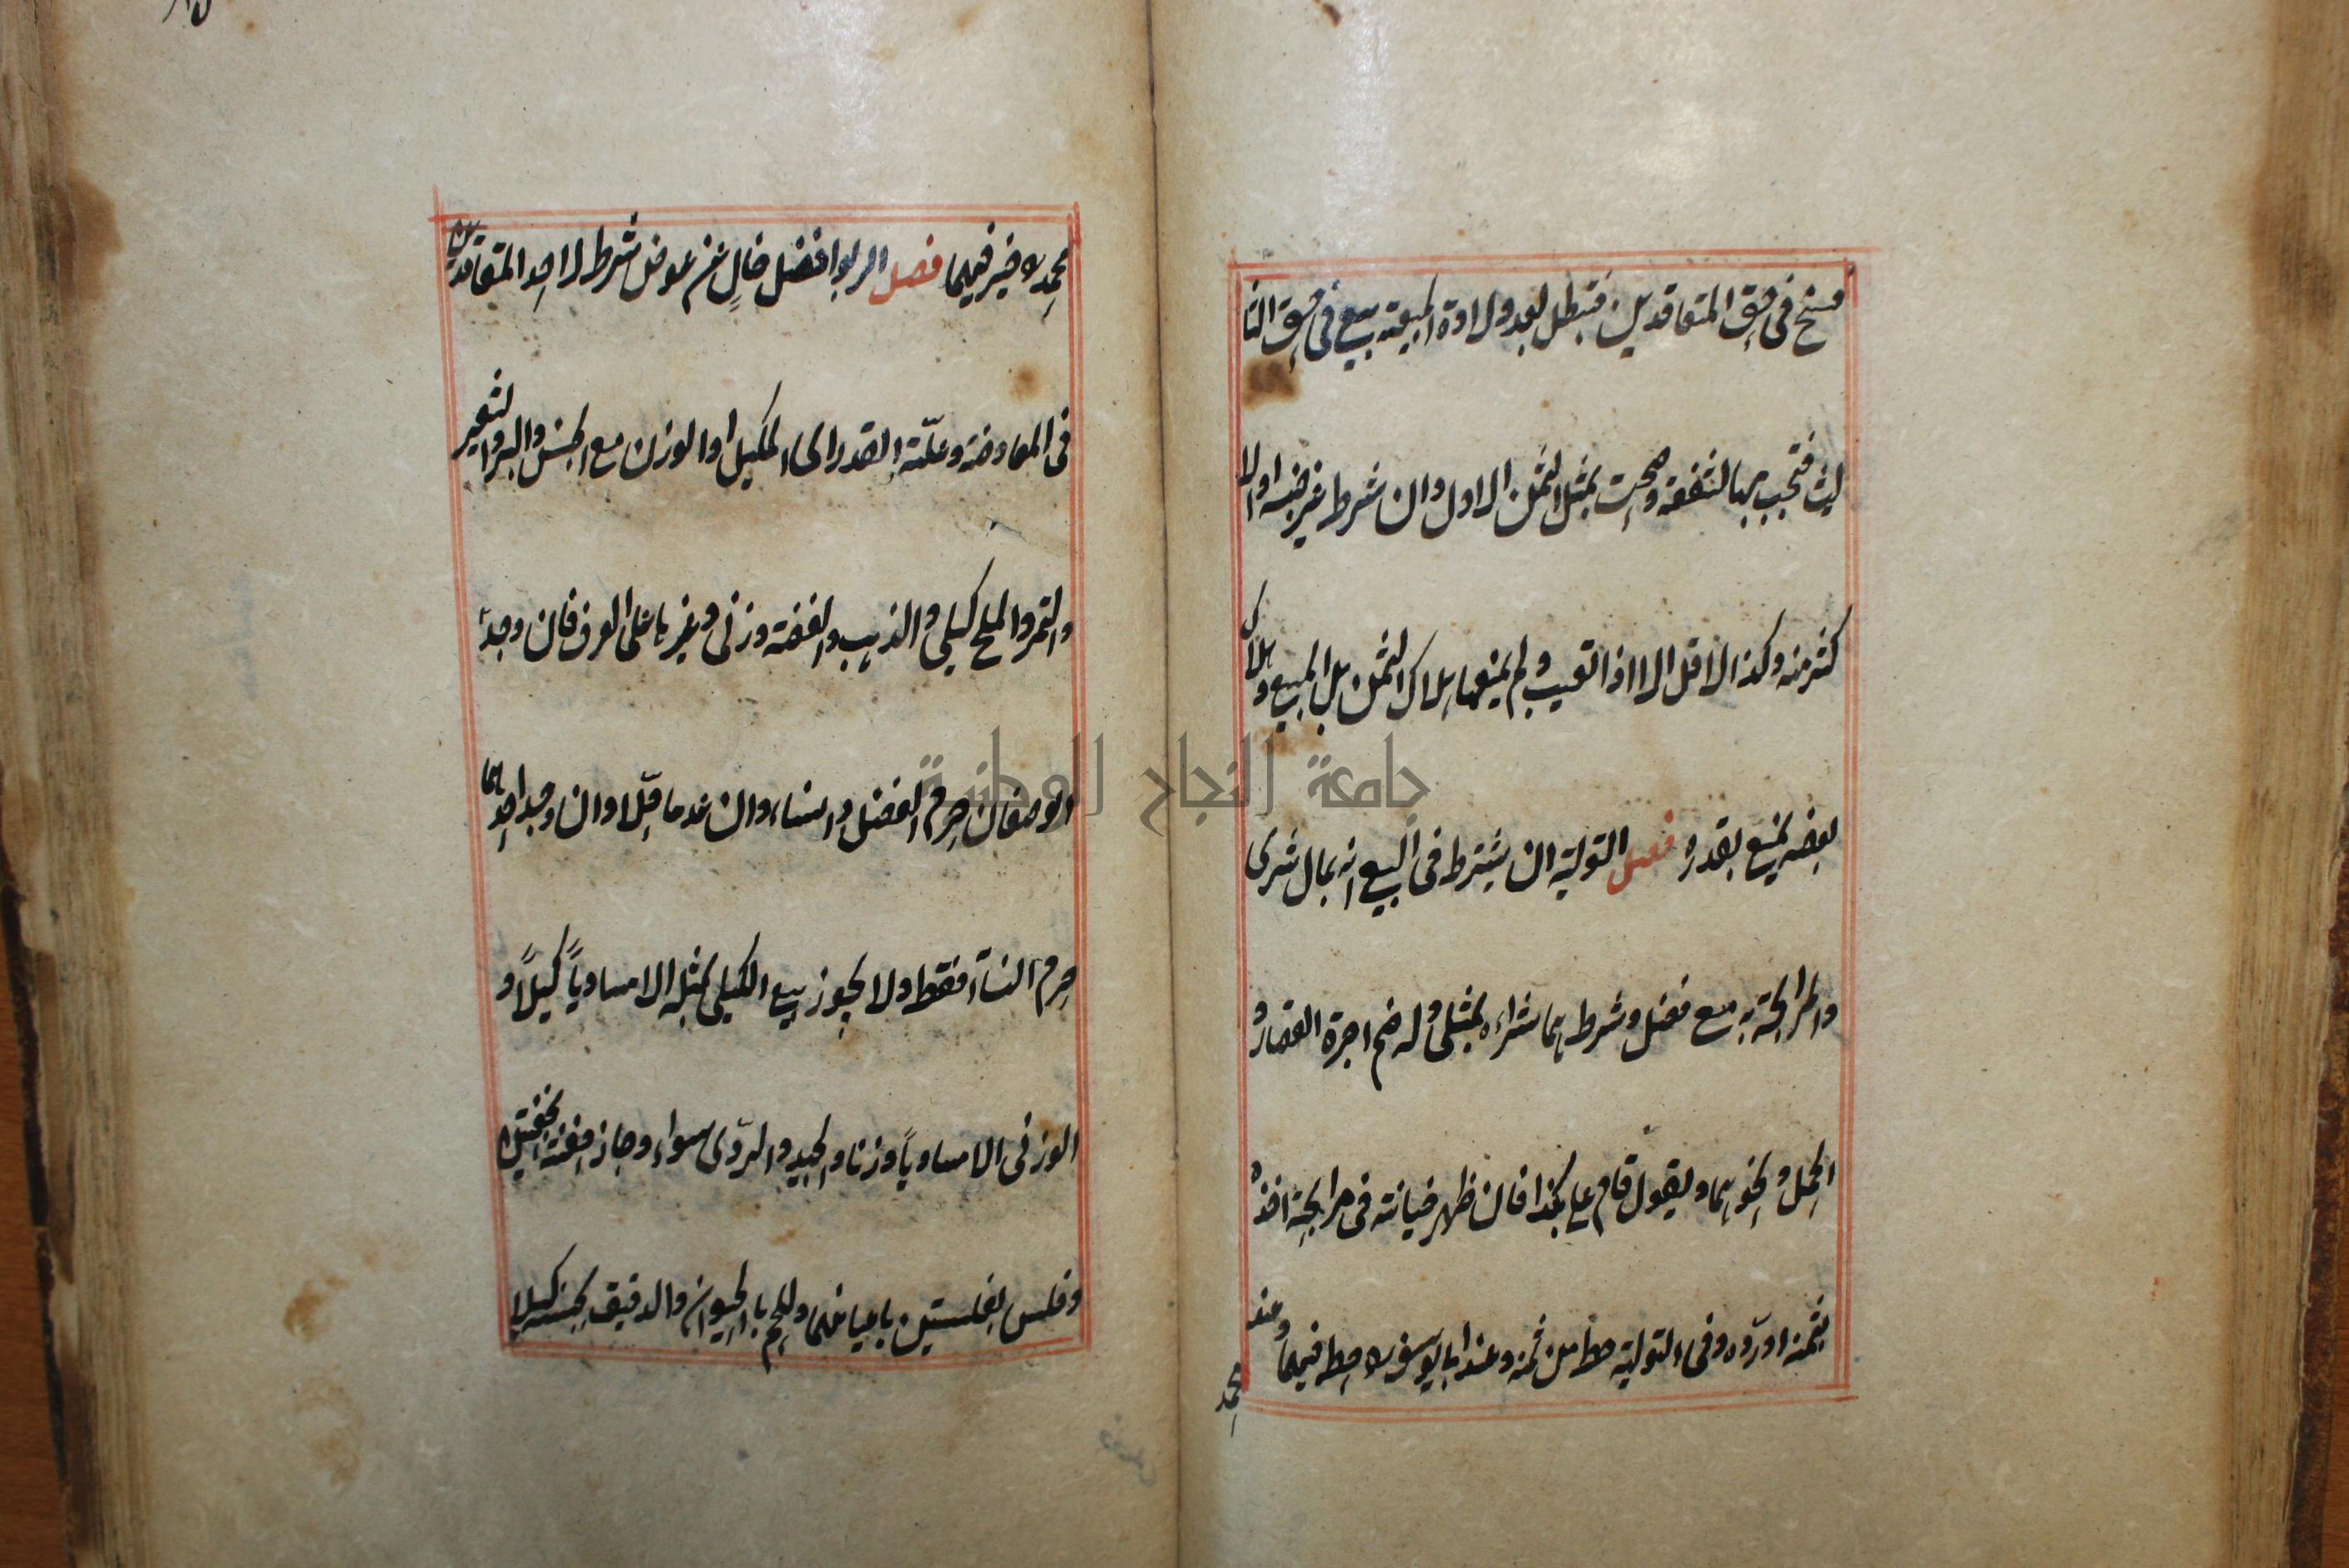 فسخ في حق المتعاقدين فتبطل بعد ولادة المبيعة بيع في حق الثا
لث فتجب بها الشفعة وصحت بمثل الثمن الاول وان شرط غير جنسه او الا
كثر منه وكذا الاقل الا اذا تعيب ولم يمنعها هلاك الثمن بل المبيع وهلاك
بعضه يمنع بقدره فصل التولية ان يشترط في البيع انه بمال شرى
والمرابحة به مع فضل وشرطهما شراءه بمثلي وله ضم اجرة القصار و
الحمل ونحوهما ويقول قام علي بكذا فان ظهر خيانته في مرابحة اخذه
بثمنه او رده وفي التولية حط من ثمنه وعند ابا يوسف ره حط فيهما وعند
محمد
محمد ره خير فيهما فصل الربوا فضل خالٍ عن عوض شرط لاحد المتعاقدين
في المعاوضة وعلّته القدر اى الكيل او الوزن مع الجنس والبر والشعير
والتمر والملح كيلي والذهب والفضة وزني وغيرها على العرف فان وجد
الوصفان حرم الفضل والنساء وان عدما حلّا وان وجد احدهما
حرم النساء فقط ولا يجوز بيع الكيلي بمثله الا مساوياً كيلاً و
الوزني الا مساوياً وزنا والجيد والردّى سواء وجاز حفنة بحفنتين
وفلس بفلستين باعيانهما واللحم بالحيوان والدقيق بجنسه كيلا
جامعة النجاح الوطنية